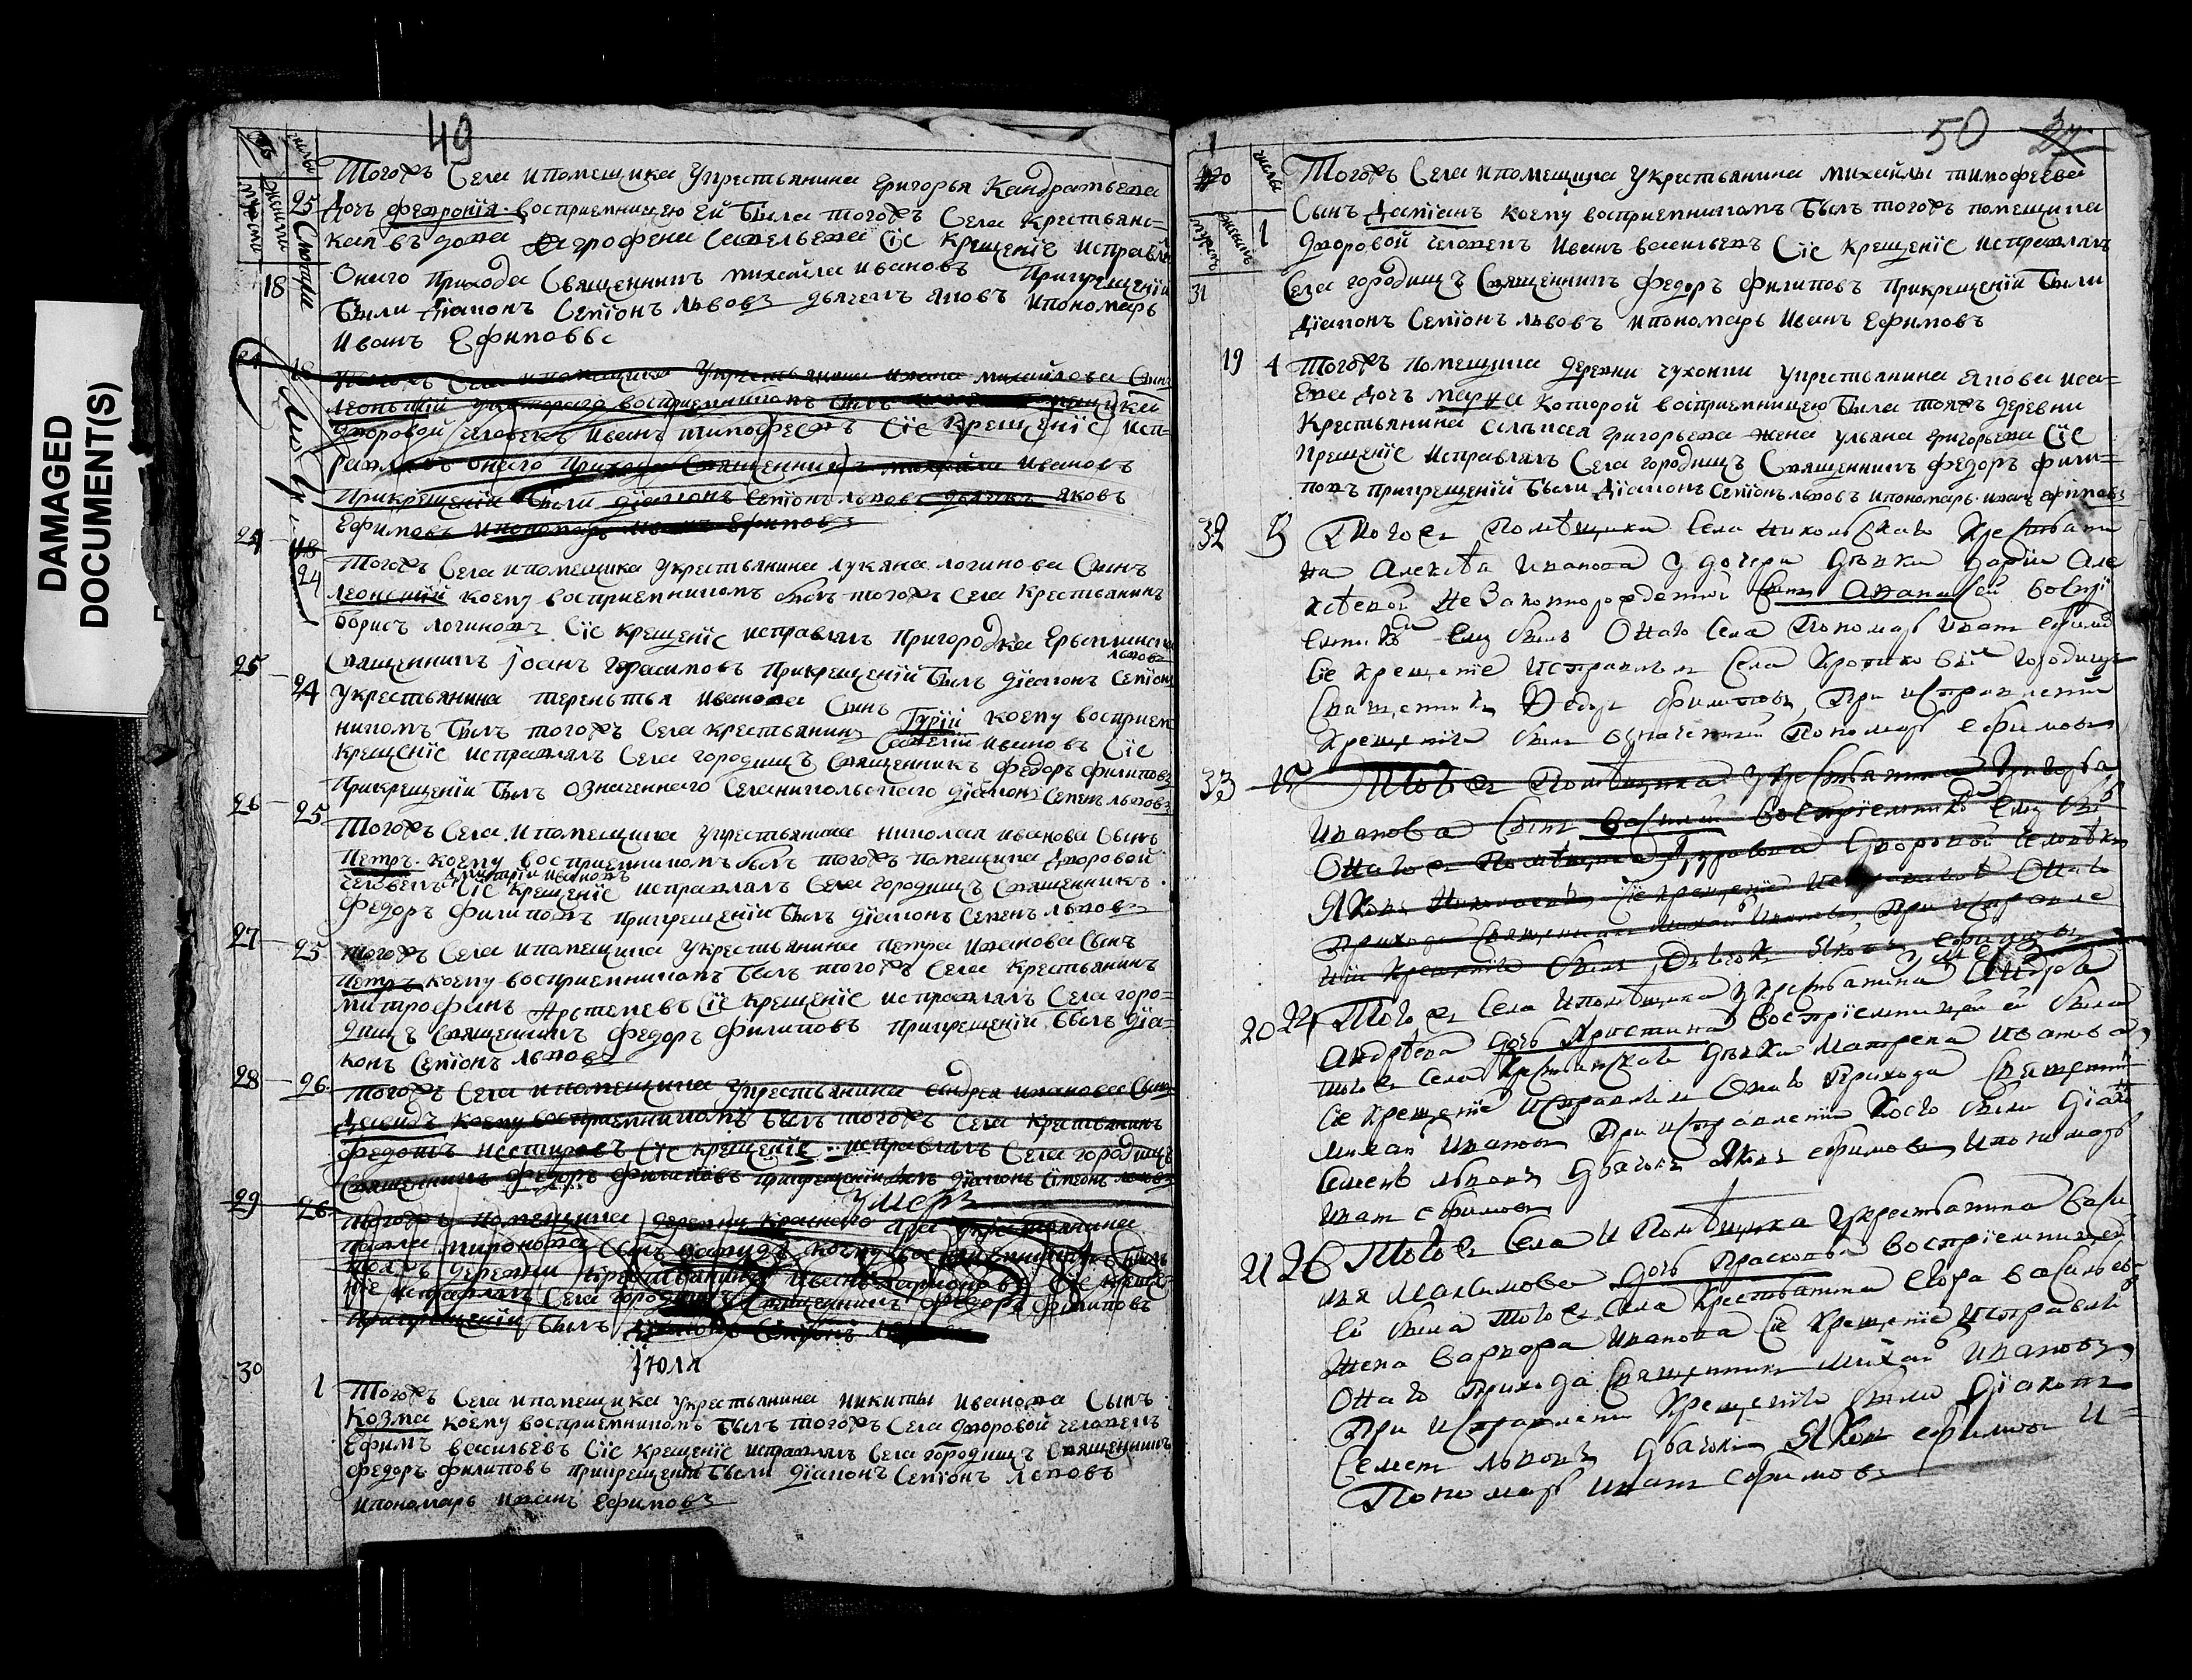 DAMAGED
DOCUMENT(S)
49
Тогожъ Села ипомещика укрестьянина григорья Кандратьева
25 Дочь феѵронiя восприемницею Ей была тогожъ Села Крестьянс=
кая вдова Агрофена Савельева Сiе Крещенiе Исправлялъ
18 Онаго Прихода Священникъ михаила ивановъ Прикрещенiи
Были Дiаконъ Семiонъ Львовъ дьячекъ яковъ ипономарь
Иванъ Ефимовъ
24 Тогожъ Села ипомещика Укрестьянина ивана михайлова Сынъ
Леонътiй укотораго восприемникомъ былъ
дворовой человекъ Иванъ тимофеевъ Сiе Крещенiе исп=
равлялъ онаго Прихода Священникъ михаила Ивановъ
Прикрещенiи были дiаконъ Семiонъ львовъ дьячекъ яковъ
Ефимовъ ипономарь иванъ Ефимовъ
24
24 Тогожъ Села ипомещика укрестьянина лукяна логинова Сынъ
Леонтiй коему восприемникомъ былъ тогожъ Села Крестьянинъ
Борисъ логиновъ Сiе крещенiе исправлялъ Пригородка
Священникъ Iоанъ герасимовъ Прикрещенiи былъ дiаконъ Семiонъ
львовъ
25 24 укрестьянина терентья Иванова Сынъ Гурiй коему восприем
никомъ былъ тогожъ Села крестьянинъ Савелiй ивановъ Сiе
Крещенiе исправлялъ Села городищъ Священникъ федоръ филиповъ
Прикрещенiи былъ означеннаго Селаникольскаго дiаконъ Семенъ львовъ
26 25 Тогожъ Села ипомещика укрестьянина николая иванова Сынъ
Петръ коему восприемникомъ былъ тогожъ помещика Дворовой
человекъ дмитрiй ивановъ Сiе крещенiе исправлялъ Села городищъ Священникъ
федоръ филиповъ прикрещенiи былъ дiаконъ Семенъ львовъ
27 25 тогожъ Села ипомещика укрестьянина петра Иванова Сынъ
Петръ коему восприемникомъ былъ тогожъ Села Крестьянинъ
митрофанъ Артемевъ Сiе крещенiе исправлялъ Села горо=
дищъ Священникъ федоръ филиповъ прикрещенiи былъ дiа=
конъ Семiонъ львовъ
28 26 тогожъ Села ипомещика укрестьянина андрея иванова Сынъ
Давидъ коему восприемникомъ былъ тогожъ Села крестьянинъ
федотъ нестировъ Сiе крещенiе исправлялъ Села городищъ
Священникъ федоръ филиповъ прикрещенiи былъ дiаконъ Семiонъ львовъ
умеръ
29 26 тогожъ помещика деревни Красного яра укрестьянина
павла миронова Сынъ давидъ коему восприемникомъ былъ
тоежъ деревни Крестьянинъ Иванъ Сiе креще
нiе исправлялъ Села городищъ Священникъ федоръ филиповъ
Прикрещенiи былъ Дiаконъ Семiонъ
Iюля
30 1 Тогожъ Села ипомещика укрестьянина никиты Иванова Сынъ
Козма коему восприемникомъ былъ тогожъ Села дворовой человекъ
Ефимъ васильевъ Сiе крещенiе исправлялъ Села городищъ Священникъ
федоръ филиповъ прикрещенiи были дiаконъ Семiонъ Львовъ
ипономарь иванъ Ефимовъ
50
Тогожъ Села ипомещика Укрестьянина михайлы тимофеева
1 Сынъ Дамiанъ коему восприемникомъ былъ тогожъ помещика
дворовой человекъ Иванъ васильевъ Сiе крещенiе исправлялъ
31 Села городищъ Священникъ федоръ филиповъ Прикрещенiи были
дiаконъ Семiонъ львовъ ипономарь Иванъ Ефимовъ
19 4 тогожъ помещика деревни чухонки укрестьянина якова иса=
ева дочь марѳа которой восприемницею была тояжъ деревни
Крестьянина григорьева жена ульяна григорьева Сiе
Крещенiе исправлялъ Села городищъ Священникъ федоръ фили=
повъ прикрещенiи были Дiаконъ Семiонъ львовъ ипономарь иванъ ефимовъ
32 5 Тогожъ Помѣщика Села никольскаго Крестьяни
на Алексѣя иванова у дочери дѣвки дарiи Але
ксѣевой незаконнорожденной Сынъ Аѳанасей воспрi
емникъ ему былъ Онаго Села Пономарь иванъ ефимо
Сiе Крещенiе исправлялъ Села Кротковки городищъ
Священникъ Федоръ филиповъ При исправленiи
Крещенiя былъ означенный Пономарь ефимовъ
33 Тогожъ Помѣщика укрестьянина Григорья
иванова Сынъ василiй воспрiемникъ ему былъ
Онагожъ Помѣщика дворовой человѣкъ
Яковъ Николаевъ Сiе крещенiе исправлялъ Онаго
прихода Священникъ михайла ивановъ При исправле
нiи крещенiя былъ дьячекъ Яковъ ефимовъ
умеръ
20 24 Тогожъ Села ипомѣщика укрестьянина
Андрѣева дочь Христина воспрiемницей ей была
тогожъ Села Крестьянская дѣвка матрена иванова
Сiе крещенiе исправлялъ Онаго Прихода Священникъ
михай ивановъ При исправленiи коего были дiаконъ
Семенъ львовъ дьячекъ Яковъ ефимовъ ипономарь
иванъ ефимовъ
21 26 Тогожъ Села и Помѣщика укрестьянина васи
лья максимова дочь Прасковья воспрiемницей
ей была тогожъ Села крестьянина егора васильева
жена варвара иванова Сiе Крещенiе исправлялъ
Онаго Прихода Священникъ михай ивановъ
При исправленiи Крещенiя были дiаконъ
Семенъ львовъ дьячекъ Яковъ ефимовъ и=
Пономарь иванъ ефимовъ